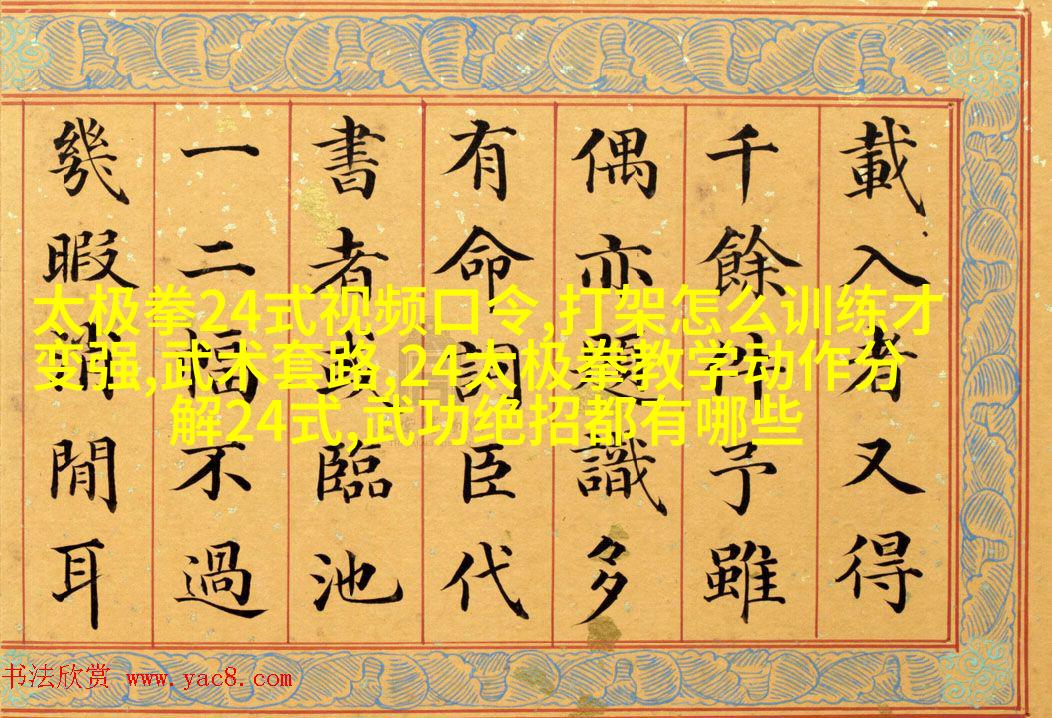 載入者又得
千餘件予雖
偶亦題識多
有命詞臣代
書者矣臨池
一二幅不過
幾暇消閒耳
太极拳24式视频口令,打架怎么训练才
变强,武术套路,24太极拳教学动作分
解24式,武功绝招都有哪些
书法欣赏 www.yac8.com